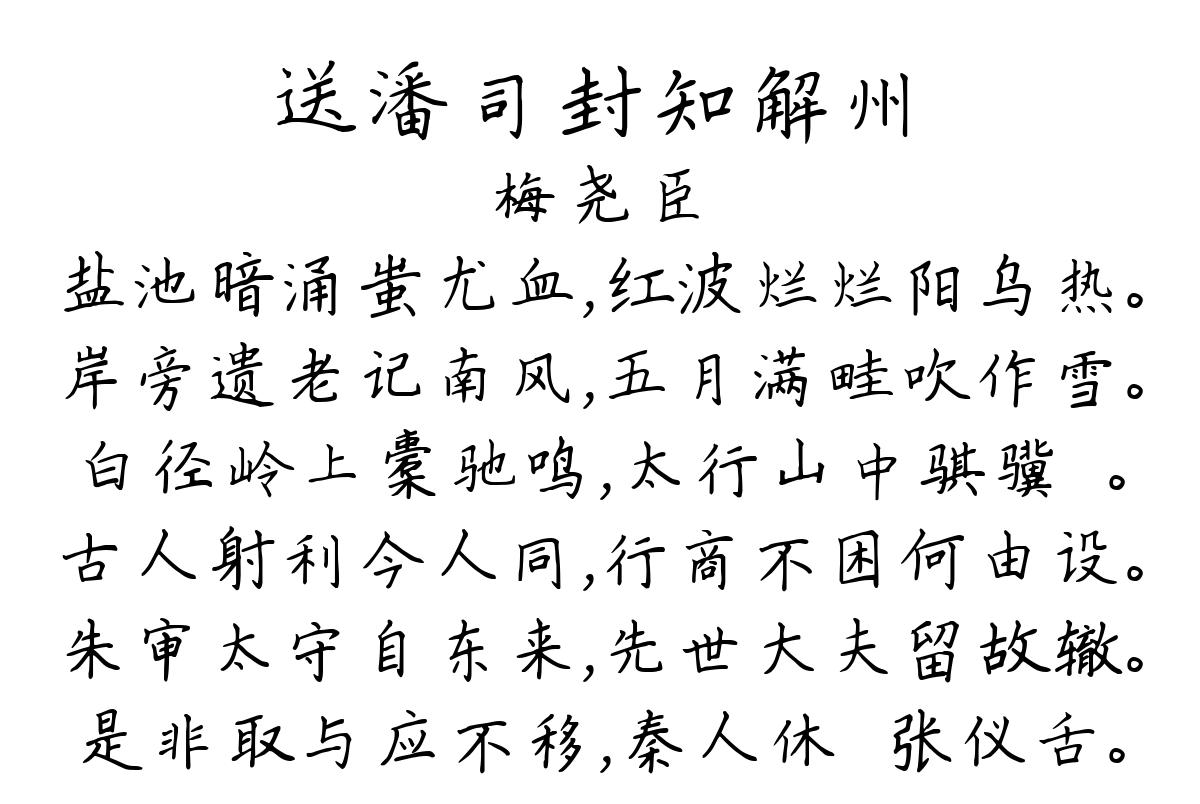 送潘司封知解州
梅尧臣
盐池暗涌蚩尤血,红波烂烂阳乌热。
岸旁遗老记南风,五月满畦吹作雪。
白径岭上橐驰鸣,太行山中骐骥 。
古人射利今人同,行商不困何由设。
朱审太守自东来,先世大夫留故辙。
是非取与应不移,秦人休 张仪舌。